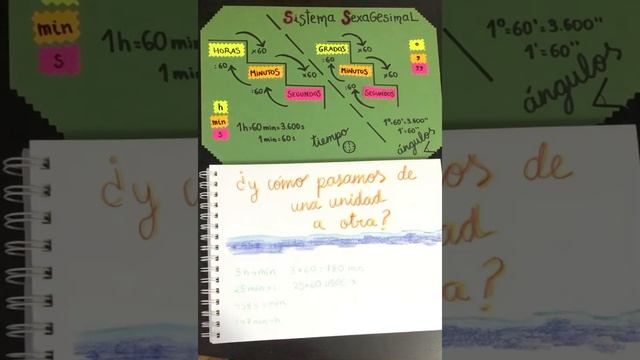 Sistema Sexagesimal
HORAS
x60
:60
MINUTOS
x60
:60
SEGUNDOS
GRADOS
x60
:60
MINUTOS
x60
:60
SEGUNDOS
h
min
s
1h=60min=3.600s
1min=60s
tiempo
1º=60'=3.600''
1'=60''
ángulos
¿y cómo pasamos de
una unidad
a otra?
3h a min 3x60=180 min
25min a s 25x60=1500 s
min
s
1h=60
1 min
1º=60'=3.600''
1'=60''
ángulos
¿y c
os de
dad
a?